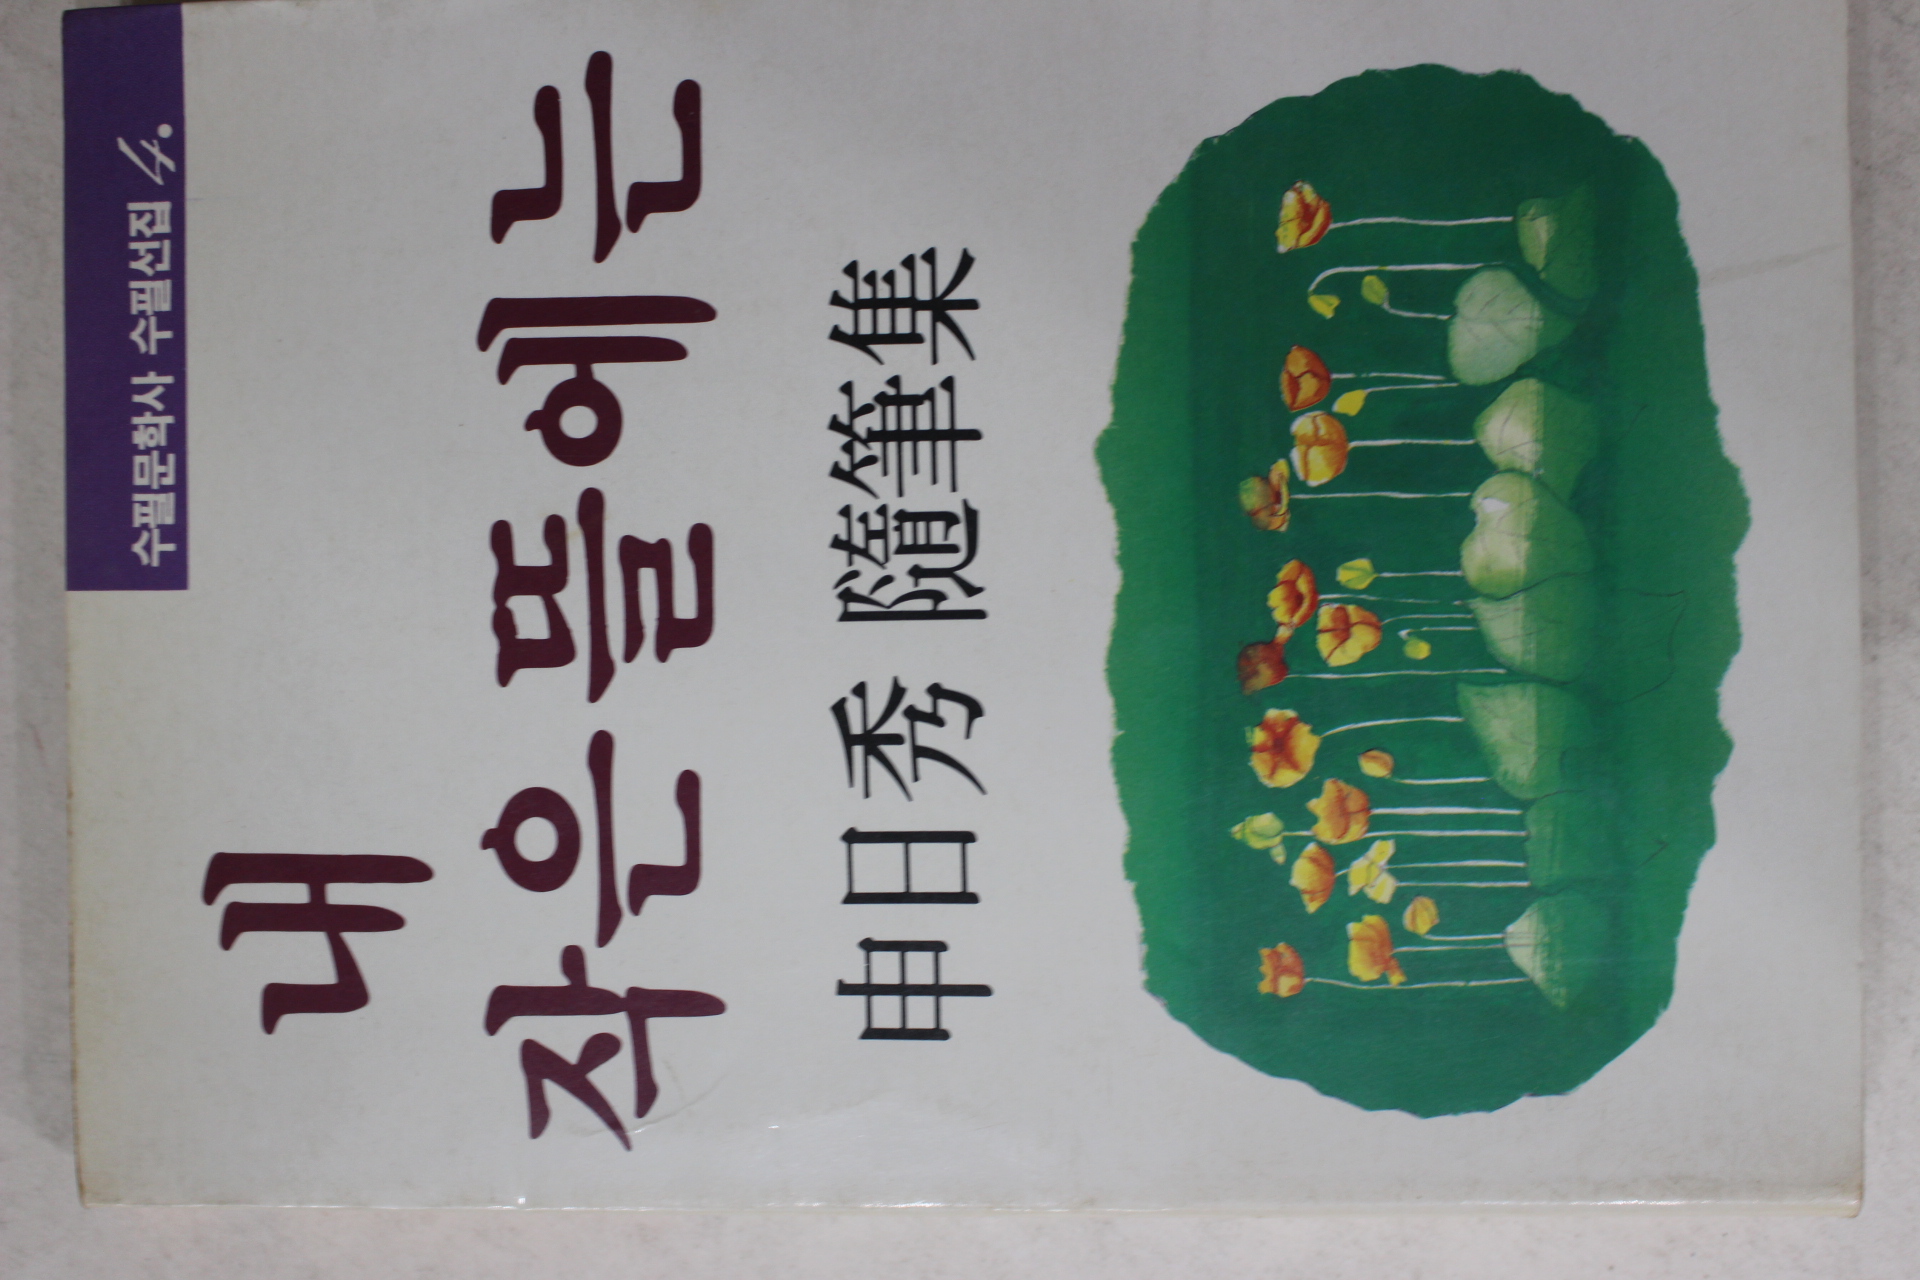 수필문학사 수필선집 4.
내
작은 뜰에는
申日秀 隨筆集